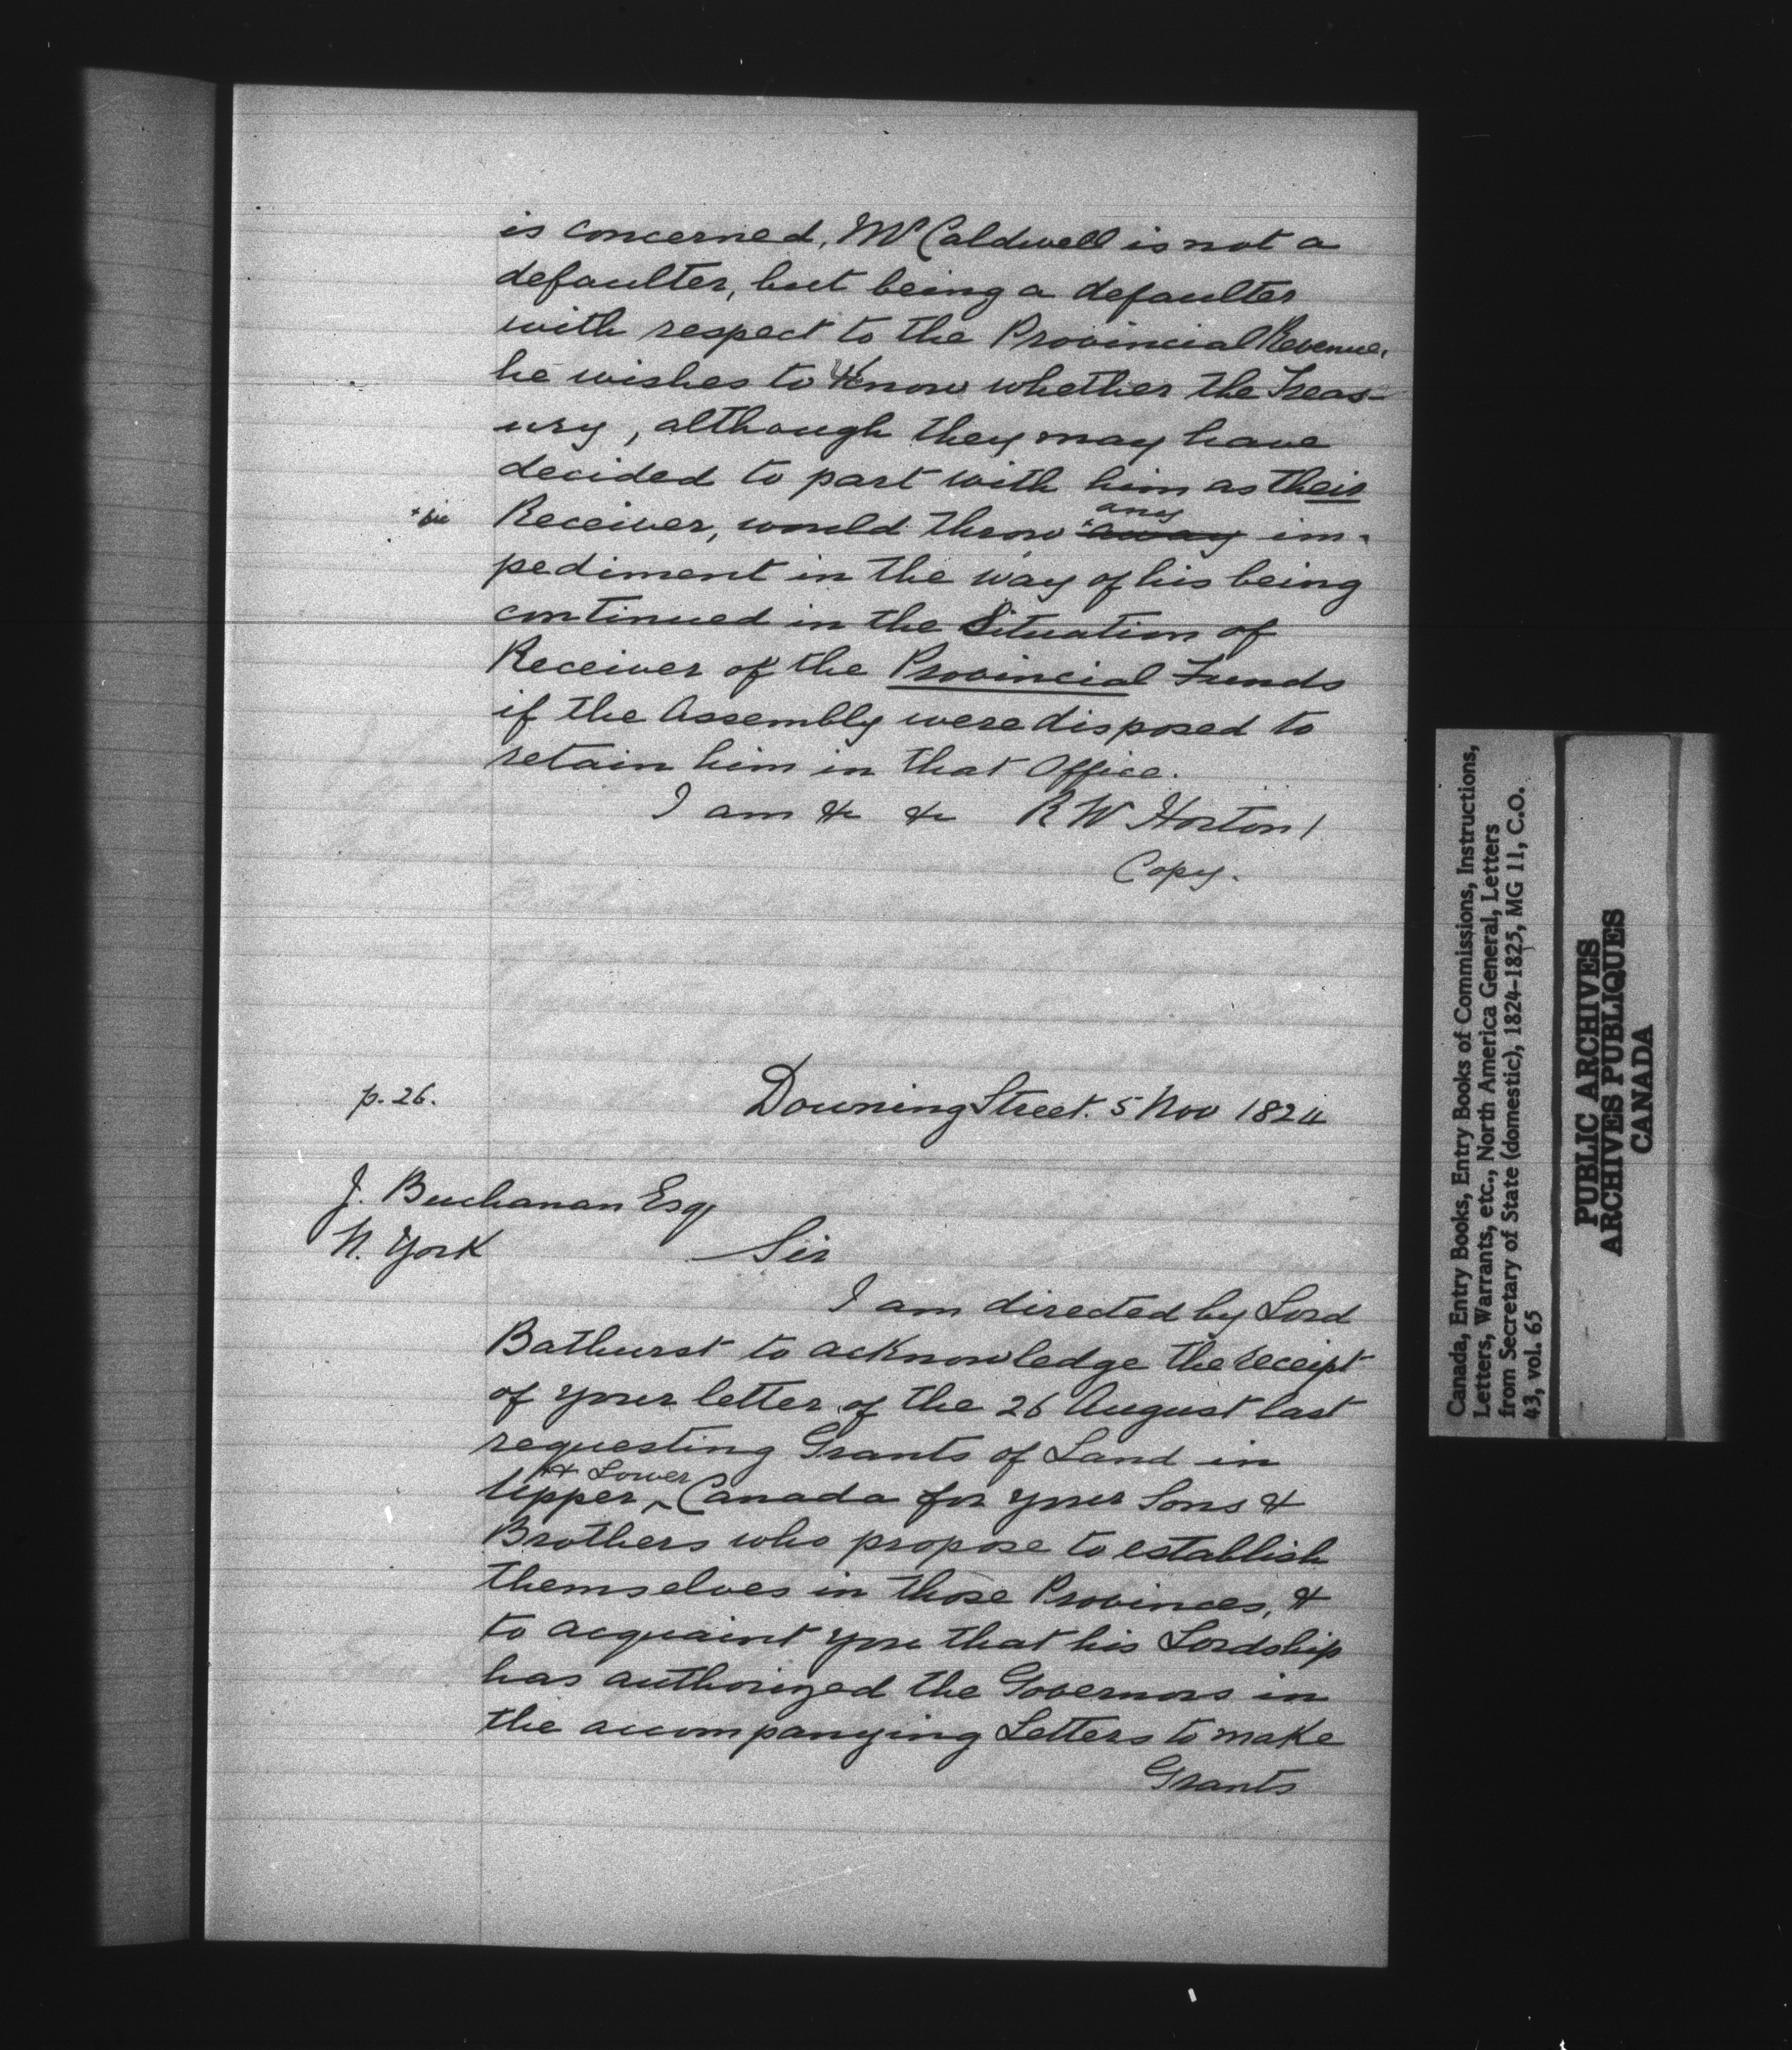 is concerned, Mr Caldwell is not a
defaulter, but being a defaulter
with respect to the Provincial Revenue,
he wishes to know whether the Treas-
ury, although they may have
decided to part with him as their
Receiver, would throw any away im-
pediment in the way of his being
continued in the Situation of
Receiver of the Provincial Funds
if the Assembly were disposed to
retain him in that Office.
I am &c &c R W Horton
Copy.
p. 26.
Downing Street. 5 Nov 1824
J. Buchanan Esq
N. York
Sir
I am directed by Lord
Bathurst to acknowledge the receipt
of your letter of the 26 August last
requesting Grants of Land in
Upper & Lower Canada for your Sons &
Brothers who propose to establish
themselves in those Provinces, &
to acquaint you that his Lordship
has authorized the Governors in
the accompanying Letters to make
Grants
Canada, Entry Books, Entry Books of Commissions, Instructions,
Letters, Warrants, etc., North America General, Letters
from Secretary of State (domestic), 1824-1825, MG 11, C.O.
43, vol. 65
PUBLIC ARCHIVES
ARCHIVES PUBLIQUES
CANADA